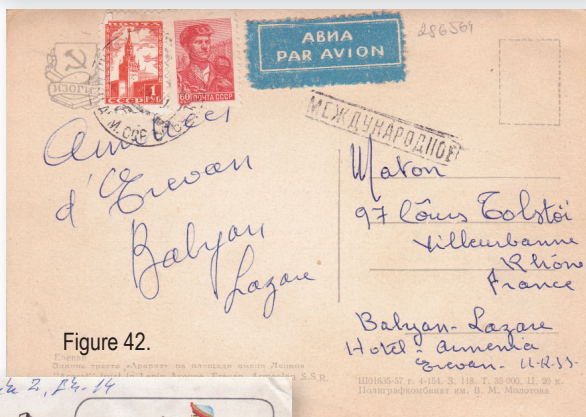 286564
АВИА
PAR AVION
ИЗОГИЗ
1
РУБ
СССР
60 ПОЧТА СССР
МЕЖДУНАРОДНОЕ
Amitiés
d'Erevan
Babyan
Lazare
Maton
97 Côurs Tolstöi
Villeurbanne
Rhône
France
Babyan-Lazare
Hotel-Armenia
Erevan-
Figure 42.
Ереван
Здание треста «Арарат» на площади имени Ленина
S.S.R.
Ш01635-57 г. 4-154. З. 118. Т. 35 000. Ц. 20 к.
Полиграфкомбинат им. В. М. Молотова